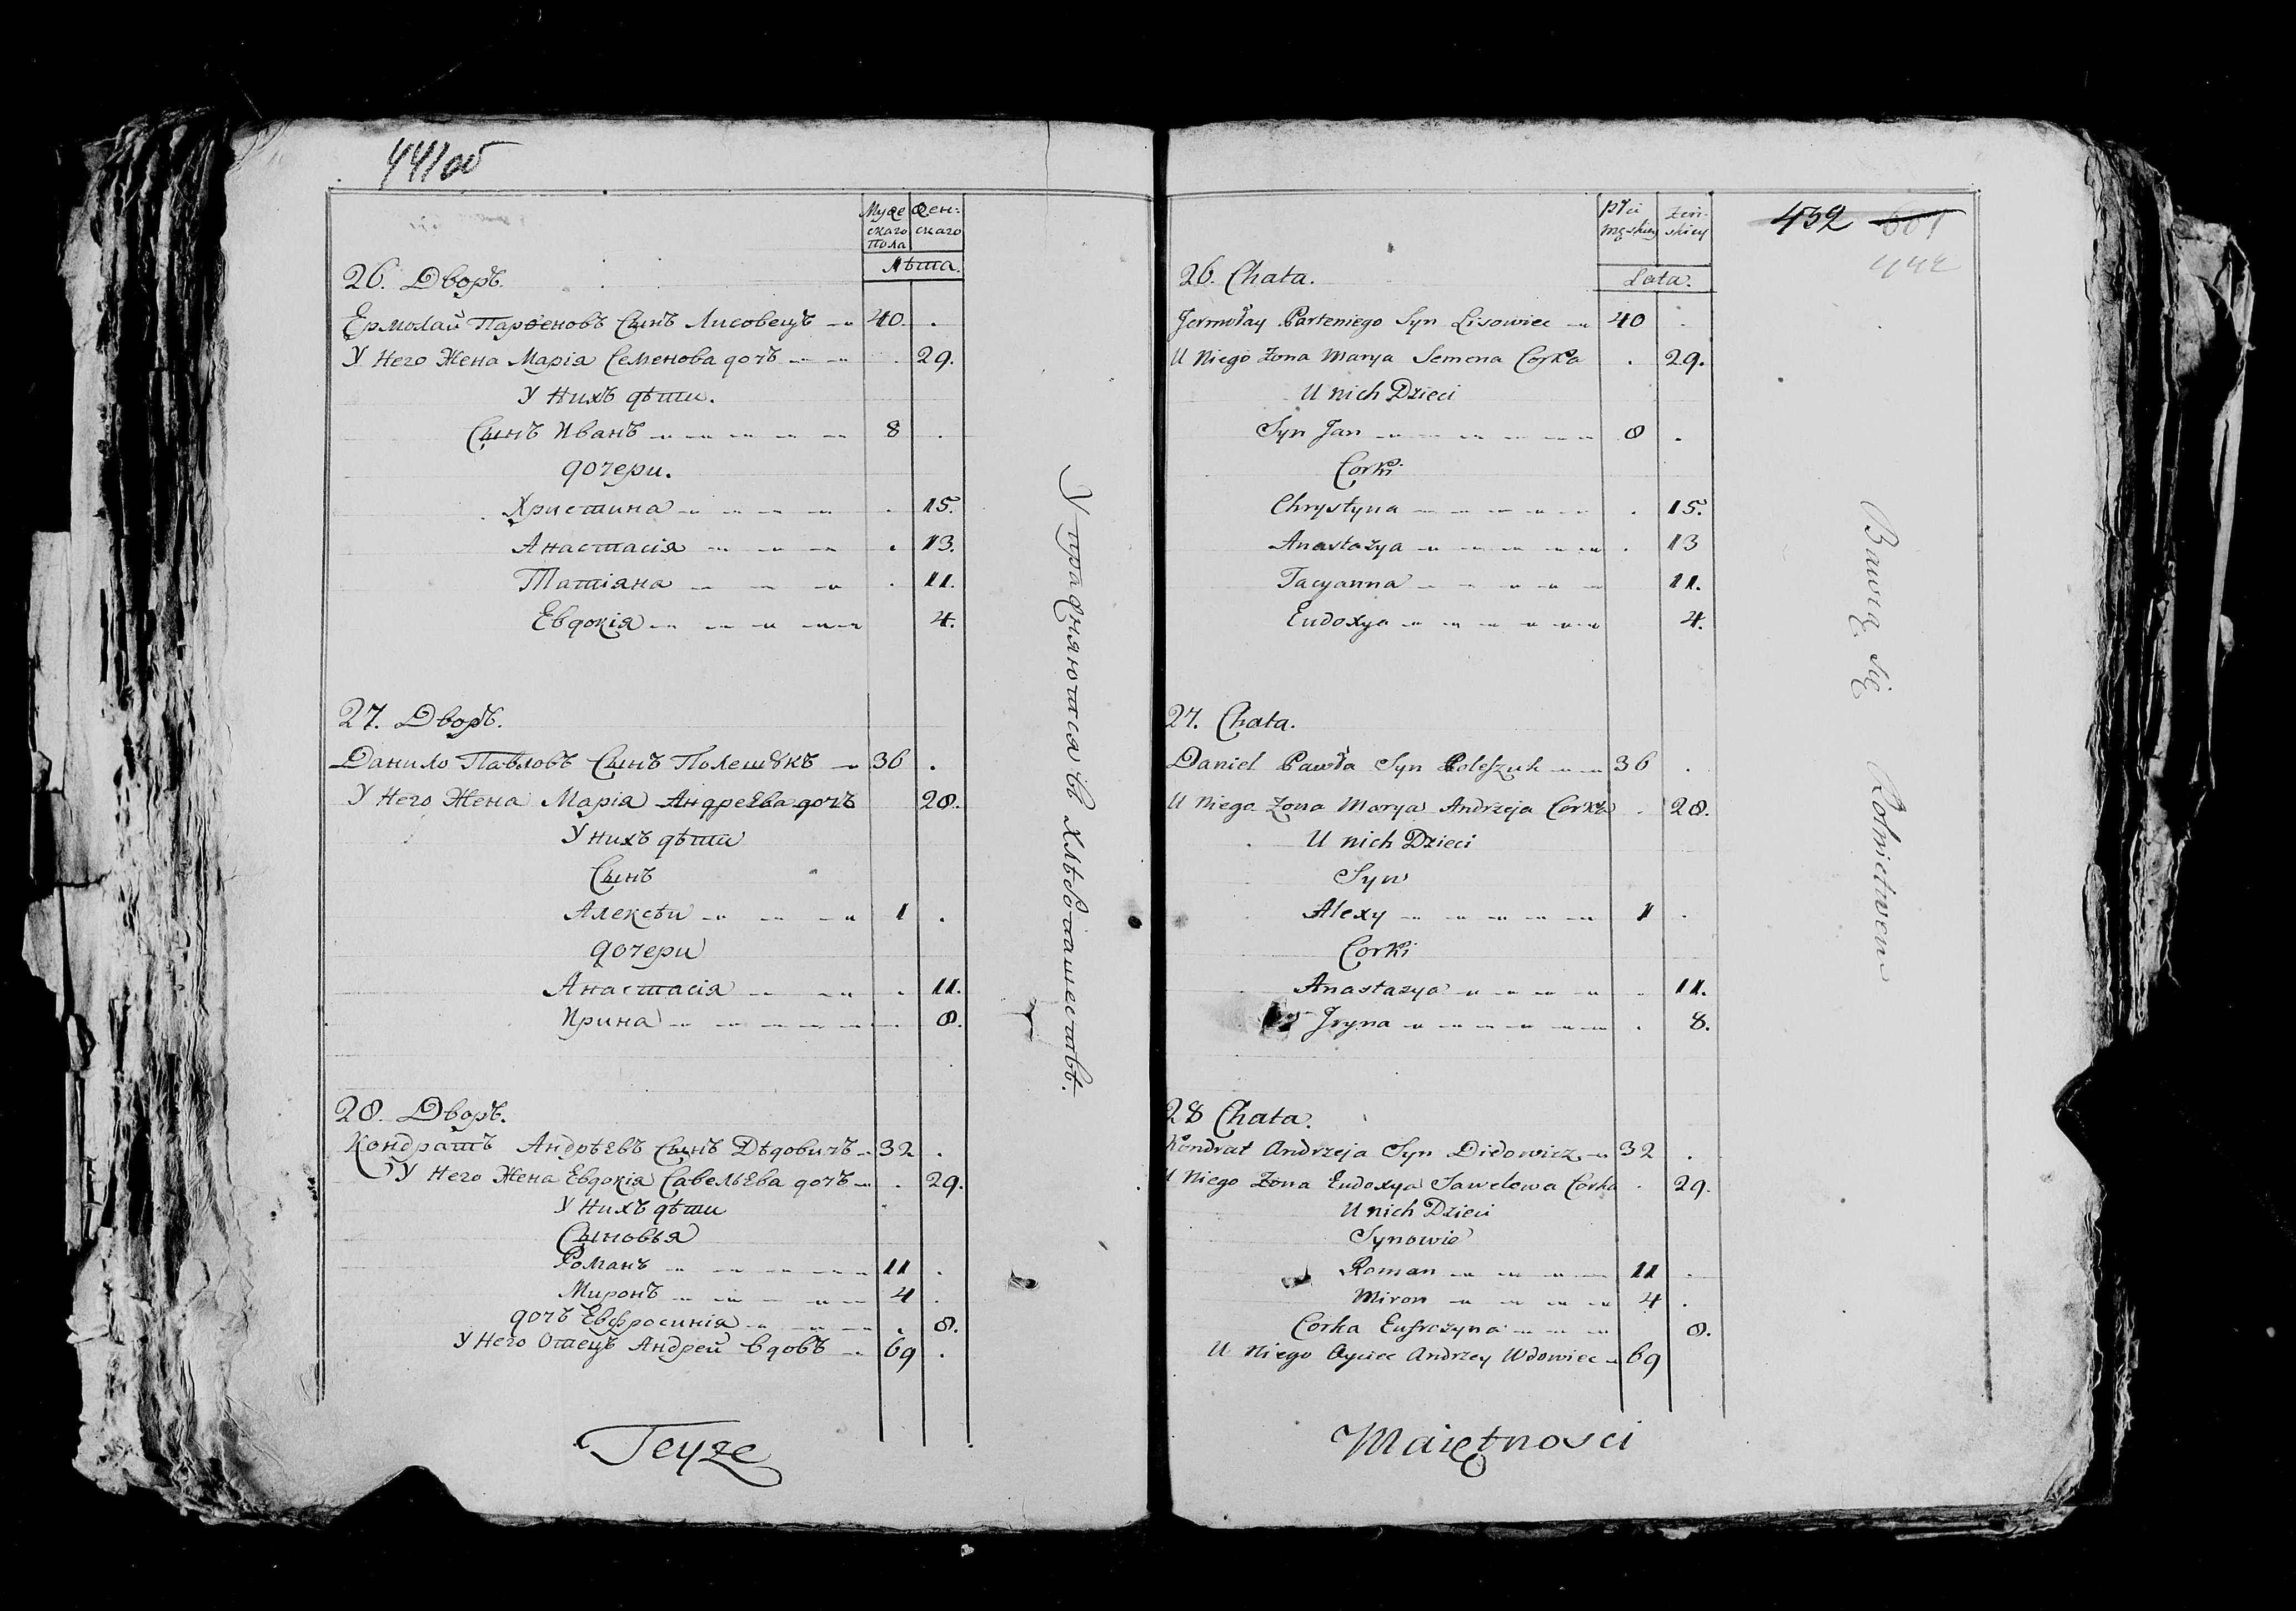 441об
Муже
скаго
пола
Жен:
скаго
Лѣта.
26. Дворъ.
Ермолай Парѳеновъ Сынъ Лисовецъ 40.
У Него Жена Марія Семенова дочъ 29.
У Нихъ дѣти.
Сынъ Иванъ 8
дочери.
Христина 15.
Анастасія 13.
Татіяна 11.
Евдокія 4.
27. Дворъ.
Данило Павловъ Сынъ Полешꙋкъ 36
У Него Жена Марія Андреева дочъ 28.
У нихъ дѣти
Сынъ
Алексѣи 1
дочери
Анастасія 11.
Ирина 8.
28. Дворъ.
Кондратъ Андрѣевъ Сынъ Дѣдовичъ 32
У Него Жена Евдокія Савельева дочъ 29.
У Нихъ дѣти
Сыновья
Романъ 11
Миронъ 4
дочъ Евфросинія 8.
У Него Отецъ Андрей вдовъ 69
Упражняются въ хлѣбопашествѣ.
Teyże
płci
męskiey
żeń-
skiey
Lata.
432 601
442
26. Chata.
Jermołay Parteniego Syn Lisowiec 40
U Niego Żona Marya Semena Corka 29.
U nich Dzieci
Syn Jan 8
Corki
Chrystyna 15.
Anastazya 13
Tacyanna 11.
Eudoxya 4.
27. Chata.
Daniel Pawła Syn Poleszuk 36
U Niego Żona Marya Andrzeja Corka 28.
U nich Dzieci
Syn
Alexy 1
Corki
Anastazya 11.
Jryna 8.
28 Chata.
Kondrat Andrzeja Syn Didowicz 32
U Niego Żona Eudoxya Sawelowa Corka 29.
U nich Dzieci
Synowie
Roman 11
Miron 4
Corka Eufrozyna 8.
U Niego Oyciec Andrzey Wdowiec 69
Bawią się Rolnictwem
Maiętnosci